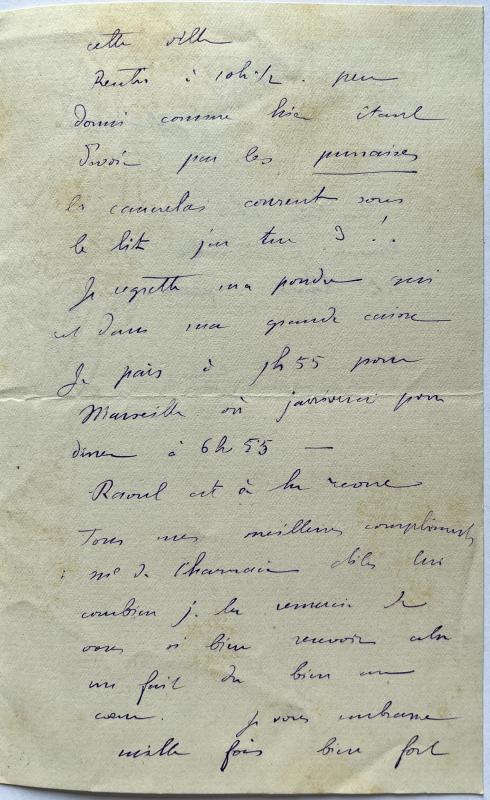 cette ville
Rentré à 10h 1/2. peu
dormi comme hier étant
par les punaises
les cancrelas courent sous
le lit j'en tue 3 !.
Je regrette ma poudre qui
est dans ma grande caisse
Je pars à 1h55 pour
Marseille où j'arriverai pour
diner à 6h55 —
Raoul est à la
Tous mes meilleurs compliments
à me de dites lui
combien je la remercie de
vous si bien recevoir cela
me fait du bien au
cœur. Je vous embrasse
mille fois bien fort